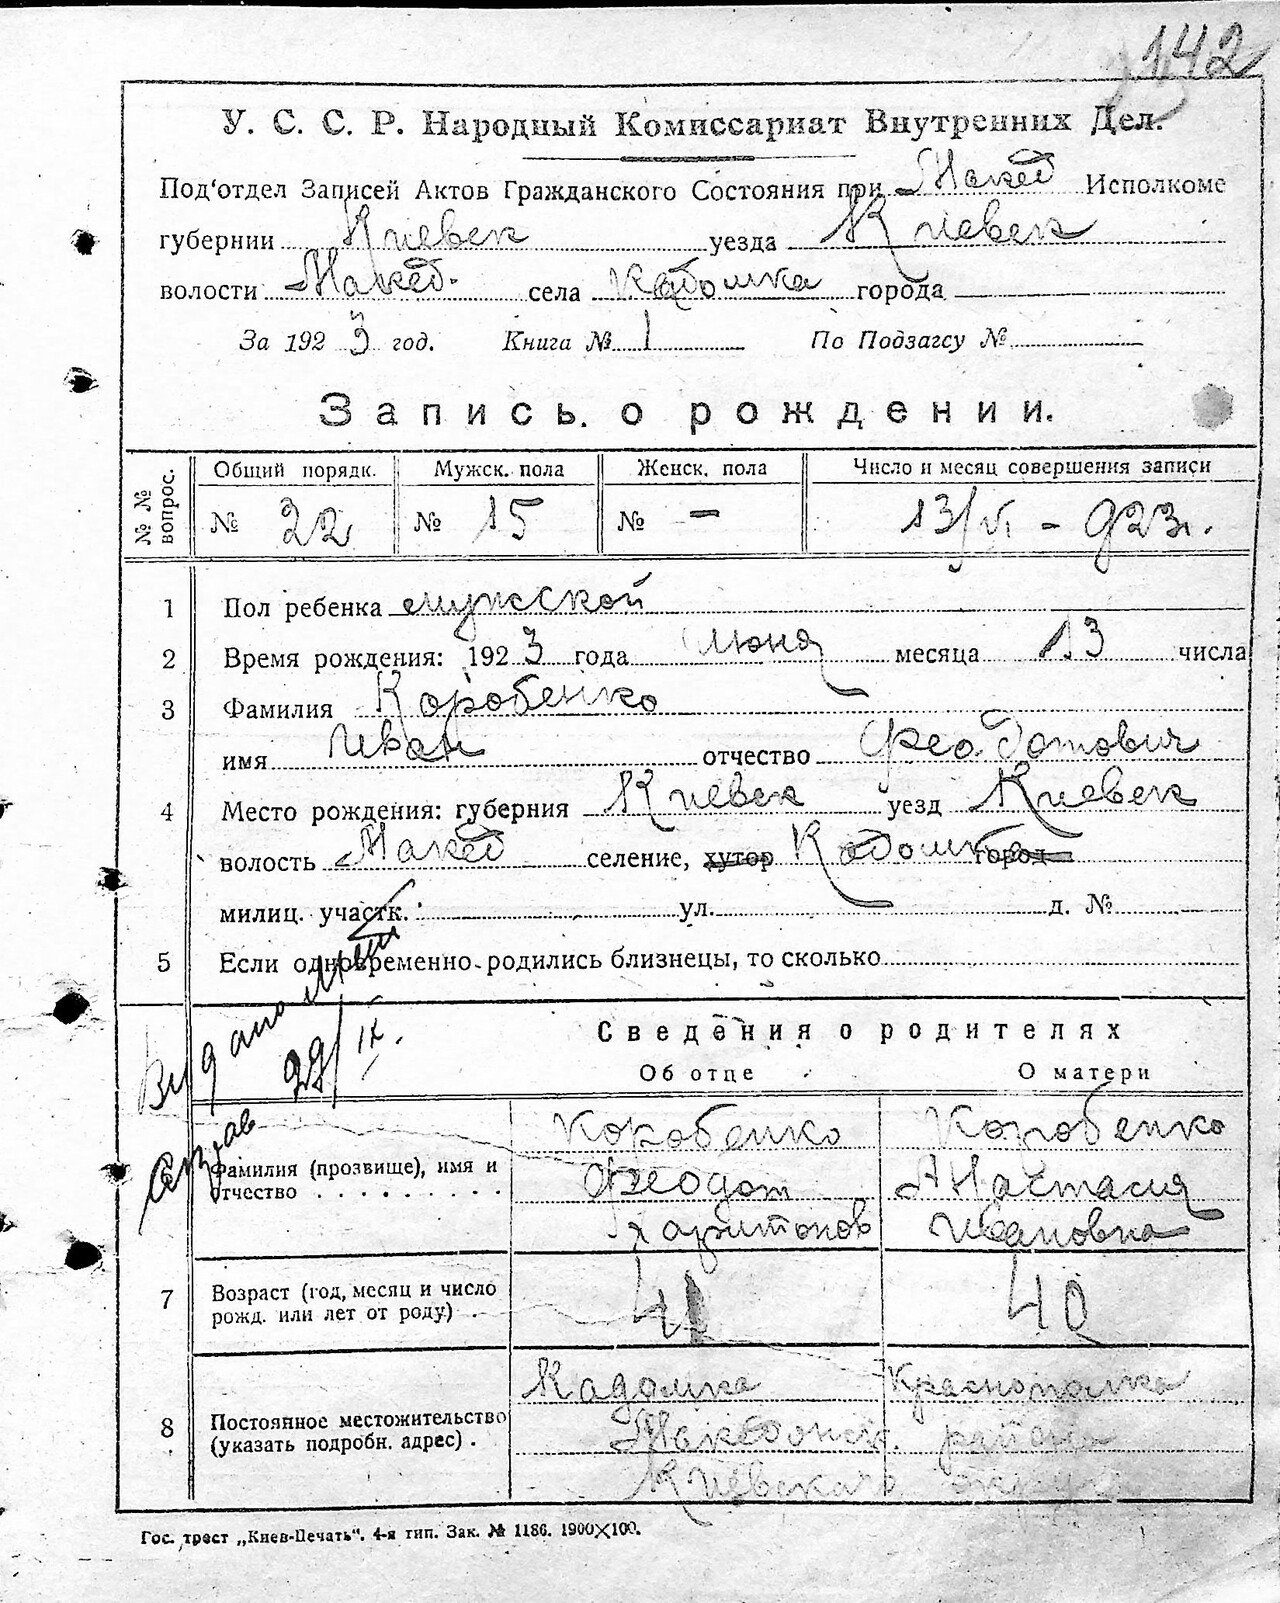 142
У. С. С. Р. Народный Комиссариат Внутренних Дел.
Под'отдел Записей Актов Гражданского Состояния при Макед Исполкоме
губернии Киевск уезда Киевск
волости Макед. села Кадомка города
За 1923 год. Книга № 1 По Подзагсу №
Запись о рождении.
№ № вопрос. Общий порядк. Мужск. пола Женск. пола Число и месяц совершения записи
№ 22 № 15 № — 13/VI - 923г.
1 Пол ребенка мужской
2 Время рождения: 1923 года июня месяца 13 числа
3 Фамилия Коробенко
имя Иван отчество Феодотович
4 Место рождения: губерния Киевск уезд Киевск
волость Макед селение, хутор Кадомка город
милиц. участк. ул. д. №
5 Если одновременно родились близнецы, то сколько
Видано
29/IX.
Сведения о родителях
Об отце О матери
Коробенко Коробенко
6 Фамилия (прозвище), имя и Феодот Анастасия
отчество . . . . . . . . . Харитонов Ивановна
7 Возраст (год, месяц и число
рожд. или лет от роду) . 41 40
Кадомка Краснополка
8 Постоянное местожительство Македонск. района
(указать подробн. адрес) . Киевского округа
Гос. трест „Киев-Печать". 4-я тип. Зак. № 1186. 1900×100.